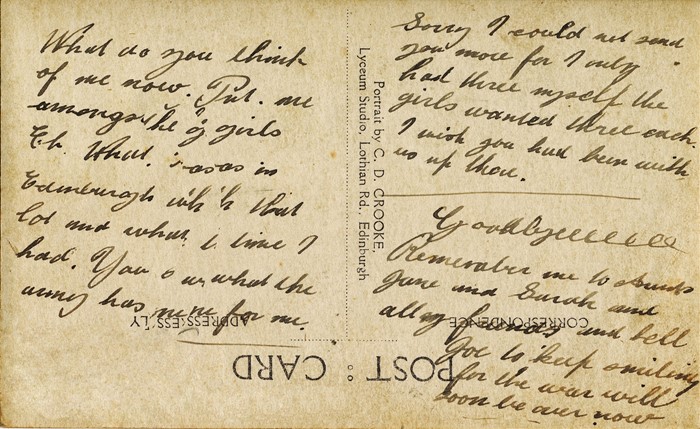 What do you think
of me now. Put. me
amongst the girls
Eh. What. I was in
Edinburgh with that
lot and what a time I
had. You what the
army has for me.
Portrait by C. D. CROOKE,
Lyceum Studio, Lothian Rd., Edinburgh
Sorry I could not send
you more for I only
had three myself the
girls wanted three each.
I wish you had been with
us up
Goodbyeeeeeee
Remember me to Aunts
Jane and Sarah and
all my friends and tell
Joe to keep smiling
for the war will
soon be over now
POST CARD
CORRESPONDENCE
ADDRESS